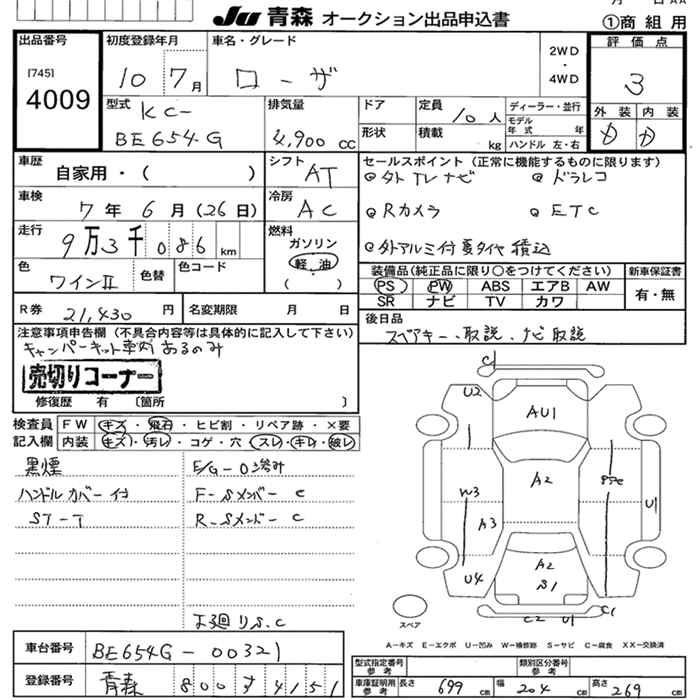 Ju 青森 オークション出品申込書
①商組用
出品番号
[745]
4009
初度登録年月
10 7月
車名・グレード
ローザ
2WD
・
4WD
評価点
3
型式
KC-
BE654G
排気量
4,900 CC
ドア
形状
定員 10人
積載 kg
ディーラー・並行
モデル年式 年
ハンドル 左・右
外装 内装
D D
車歴
自家用・( )
シフト
AT
車検
7年6月(26日)
冷房
AC
走行
9万3千086km
燃料
ガソリン
軽油
( )
色
ワインII
色替
色コード
R券 21,430円
名変期限 月 日
セールスポイント(正常に機能するものに限ります)
◎外TVナビ ◎ドラレコ
◎Rカメラ ◎ETC
◎外アルミ付夏タイヤ積込
装備品(純正品に限り○をつけてください)
PS PW ABS エアB AW
SR ナビ TV カワ
新車保証書
有・無
後日品
スペアキー、取説、ナビ取説
注意事項申告欄(不具合内容等は具体的に記入して下さい)
キャンパーキット車灯あるのみ
売切りコーナー
修復歴 有 (箇所 )
検査員記入欄
FW キズ・飛石・ヒビ割・リペア跡・×要
内装 キズ・汚レ・コゲ・穴・スレ・キレ・破レ
黒煙 E/G-O滲み
ハンドルカバー付 F-Sメンバー C
ST-T R-Sメンバー C
下廻りS.C
C
U2
AU1
A2
W3
A3
PPC
U1
U4
A2
S1
C2 U1 C1
スペア
A-キズ E-エクボ U-凹み W-補修跡 S-サビ C-腐食 XX-交換済
車台番号 BE654G-00321
登録番号 青森 800す4151
型式指定番号参考
類別区分番号参考
車庫証明用参考 長さ 699cm 幅 204cm 高さ 269cm